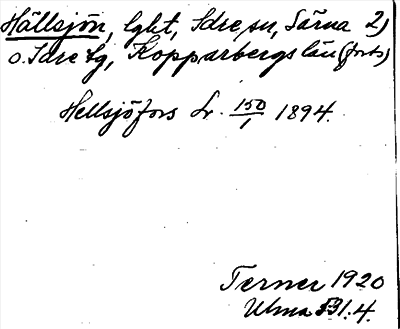 Hällsjön, lght, Idre sn, Särna 2)
o. Idre tg, Kopparbergs län (forts)
Hellsjöfors Lr. 150/1 1894.
Terner 1920
Ulma 531.4.